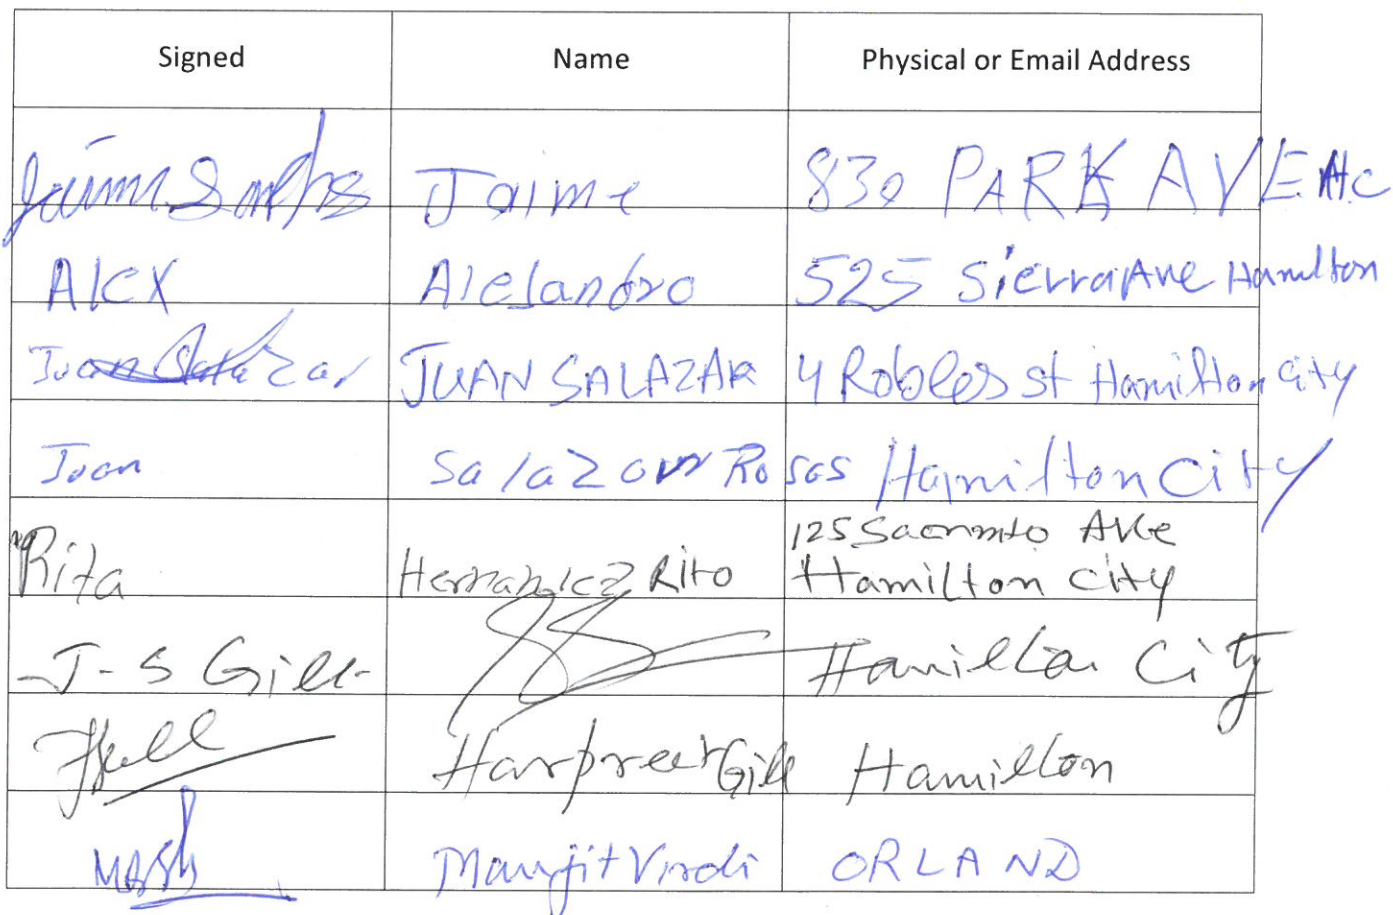 Signed Name Physical or Email Address
Jaime Jaime 830 PARK AVE HC
Alex Alejandro 525 Sierra Ave Hamilton
Juan Salazar JUAN SALAZAR 4 Robles st Hamilton City
Juan Salazar Rosas Hamilton City
125 Sacrmto Ave
Rita Hernandez Rito Hamilton City
J-S Gill Hamilton City
Harpreet Gill Hamilton
Manjit Virdi ORLAND